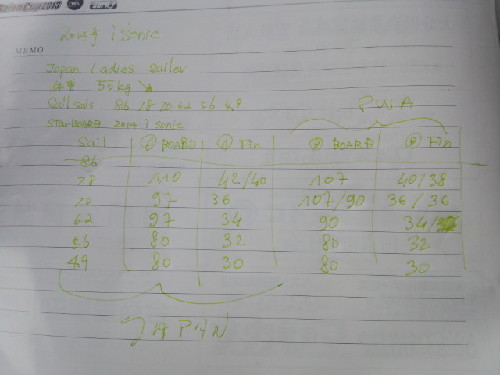 2014 iSonic
MEMO
Japan Ladies Sailer
体重 55kg
Sail Sais 8.6 7.8 7.0 6.2 5.6 4.9
Plan A
STARBOARD 2014 iSonic
Sail ① BOARD ① Fin ② BOARD ② Fin
8.6
7.8 110 42/40 107 40/38
7.0 97 36 107/90 36/36
6.2 97 34 90 34/
5.6 80 32 80 32
4.9 80 30 80 30